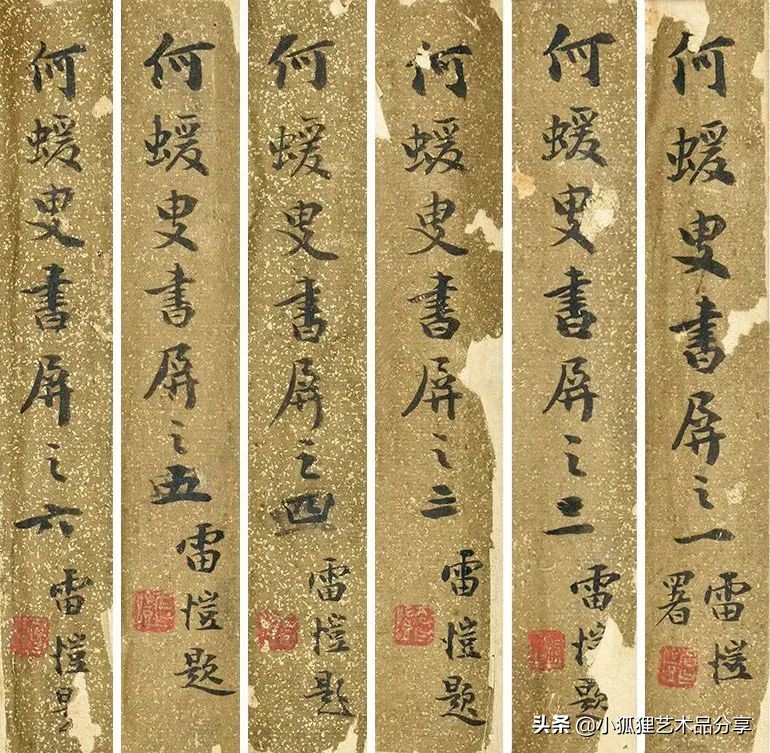 何蝯叟書屏之一
雷愷
署
何蝯叟書屏之三
雷愷題
何蝯叟書屏之二
雷愷題
何蝯叟書屏之四
雷愷題
何蝯叟書屏之五
雷愷題
何蝯叟書屏之六
雷愷
头条 @小狐狸艺术品分享